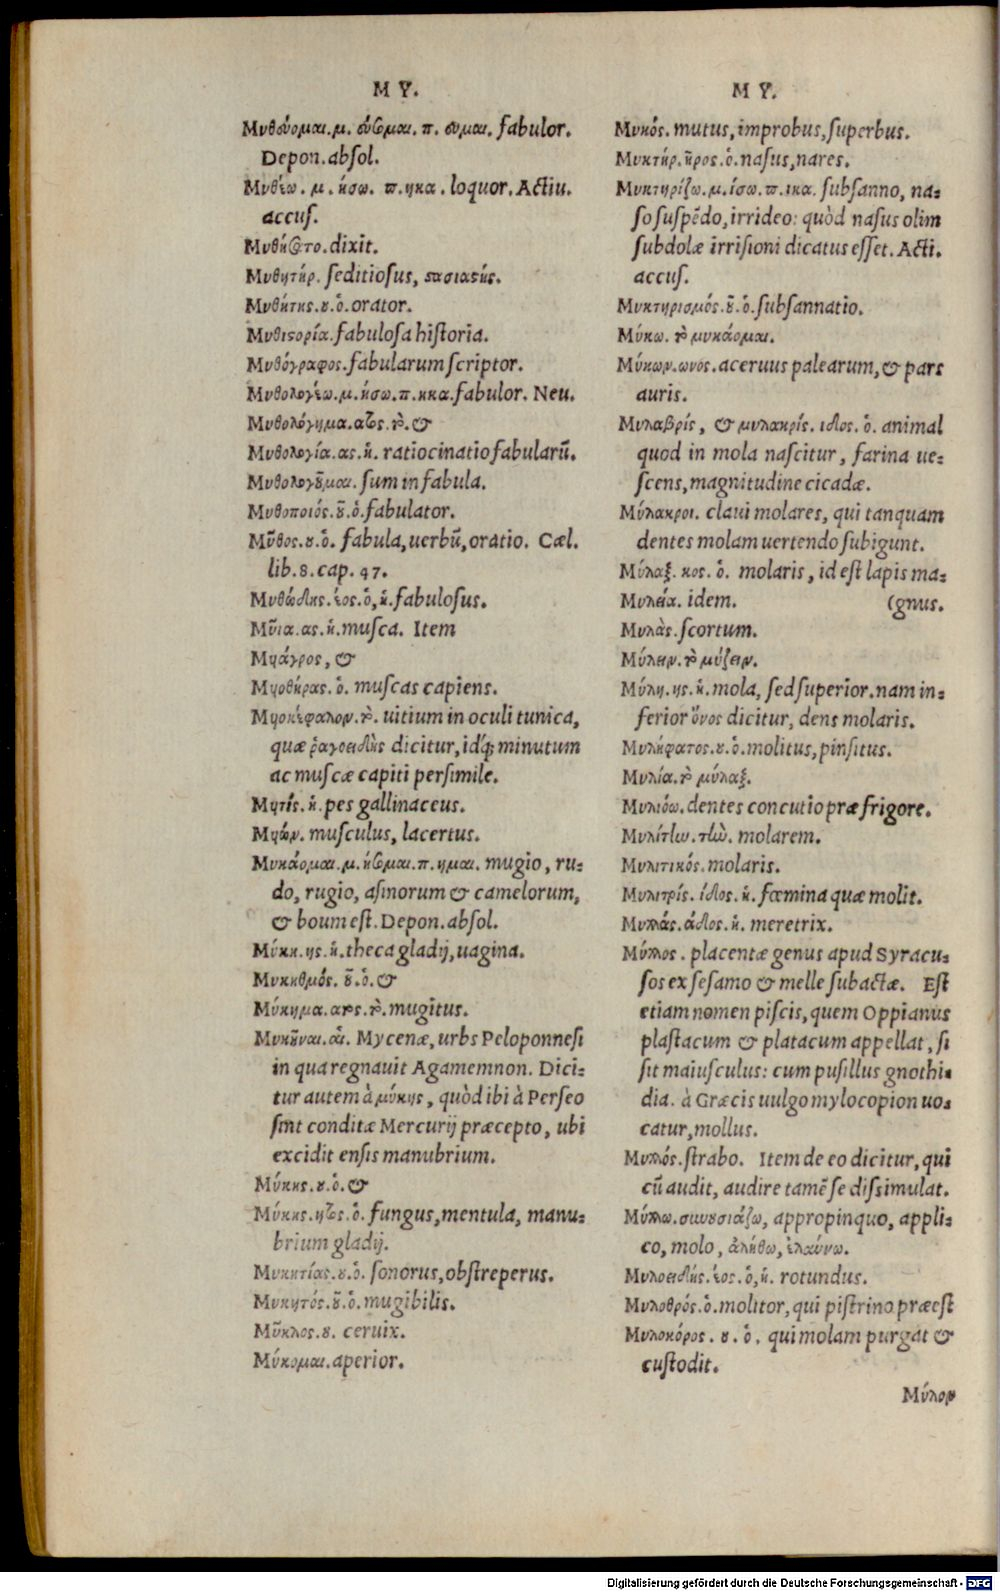 Μ Υ.
Μυθεύομαι.μ. εύσομαι. π. ευμαι. fabulor.
Depon. absol.
Μυθέω. μ. ήσω. π. ηκα. loquor. Actiu.
accus.
Μυθήσατο. dixit.
Μυθητήρ. seditiosus, ϛασιαϛής.
Μυθήτης.ȣ.ὁ.orator.
Μυθιϛορία. fabulosa historia.
Μυθόγραφος. fabularum scriptor.
Μυθολογέω.μ.ήσω.π.ηκα. fabulor. Neu.
Μυθολόγημα.ατος.τὸ.&
Μυθολογία.ας.ἡ. ratiocinatio fabularũ.
Μυθολογȣ͂μαι. sum in fabula.
Μυθοποιός.ȣ͂.ὁ. fabulator.
Μῦθος.ȣ.ὁ. fabula, uerbũ, oratio. Cæl.
lib. 8. cap. 47.
Μυθώδης.έος.ὁ,ἡ. fabulosus.
Μῦια.ας.ἡ. musca. Item
Μυιάγρος, &
Μυιοθήρας.ὁ. muscas capiens.
Μυιοκέφαλον.τὸ. uitium in oculi tunica,
quæ ῥαγοειδὴς dicitur, idq́; minutum
ac muscæ capiti persimile.
Μυιτίς.ἡ. pes gallinaceus.
Μυιών. musculus, lacertus.
Μυκάομαι.μ.ήσομαι.π.ημαι. mugio, ru-
do, rugio, asinorum & camelorum,
& boum est. Depon. absol.
Μύκη.ης.ἡ. theca gladij, uagina.
Μυκηθμός. ȣ͂.ὁ.&
Μύκημα.ατος.τὸ. mugitus.
Μυκῆναι.αἱ. Mycenæ, urbs Peloponnesi
in qua regnauit Agamemnon. Dici-
tur autem à μύκης, quòd ibi à Perseo
sint conditæ Mercurij præcepto, ubi
excidit ensis manubrium.
Μύκης.ȣ.ὁ.&
Μύκης.ητος.ὁ. fungus, mentula, manu-
brium gladij.
Μυκητίας.ȣ.ὁ. sonorus, obstreperus.
Μυκητός.ȣ͂.ὁ. mugibilis.
Μῦκλος.ȣ. ceruix.
Μύκομαι. aperior.
Μ Υ.
Μυκός. mutus, improbus, superbus.
Μυκτήρ.ῆρος.ὁ. nasus, nares.
Μυκτηρίζω.μ.ίσω.π.ικα. subsanno, na-
so suspẽdo, irrideo: quòd nasus olim
subdolæ irrisioni dicatus esset. Acti.
accus.
Μυκτηρισμός.ȣ͂.ὁ. subsannatio.
Μύκω. τὸ μυκάομαι.
Μύκων.ωνος. aceruus palearum, & pars
auris.
Μυλαβρίς, & μυλακρίς. ιδος. ὁ. animal
quod in mola nascitur, farina ue-
scens, magnitudine cicadæ.
Μύλακροι. claui molares, qui tanquam
dentes molam uertendo subigunt.
Μύλαξ. κος. ὁ. molaris, id est lapis ma-
Μυλεία. idem. (gnus.
Μυλὰς. scortum.
Μύλειν. τὸ μύζειν.
Μύλη.ης.ἡ. mola, sed superior. nam in-
ferior ὄνος dicitur, dens molaris.
Μυλήφατος.ȣ.ὁ. molitus, pinsitus.
Μυλία. τὸ μύλαξ.
Μυλιόω. dentes concutio præ frigore.
Μυλίτην. τὴν. molarem.
Μυλιτικός. molaris.
Μυλιτρίς. ίδος. ἡ. fœmina quæ molit.
Μυλλάς. άδος. ἡ. meretrix.
Μύλλος. placentæ genus apud Syracu-
sos ex sesamo & melle subactæ. Est
etiam nomen piscis, quem Oppianus
plastacum & platacum appellat, si
sit maiusculus: cum pusillus gnothi-
dia. à Græcis uulgo mylocopion uo-
catur, mollus.
Μυλλός. strabo. Item de eo dicitur, qui
cũ audit, audire tamẽ se dissimulat.
Μύλλω. συνȣσιάζω, appropinquo, appli-
co, molo, ἀλήθω, ἐλαύνω.
Μυλοειδής.έος.ὁ,ἡ. rotundus.
Μυλοθρός.ὁ. molitor, qui pistrino præest
Μυλοκόρος. ȣ. ὁ. qui molam purgat &
custodit.
Μύλον
Digitalisierung gefördert durch die Deutsche Forschungsgemeinschaft - DFG